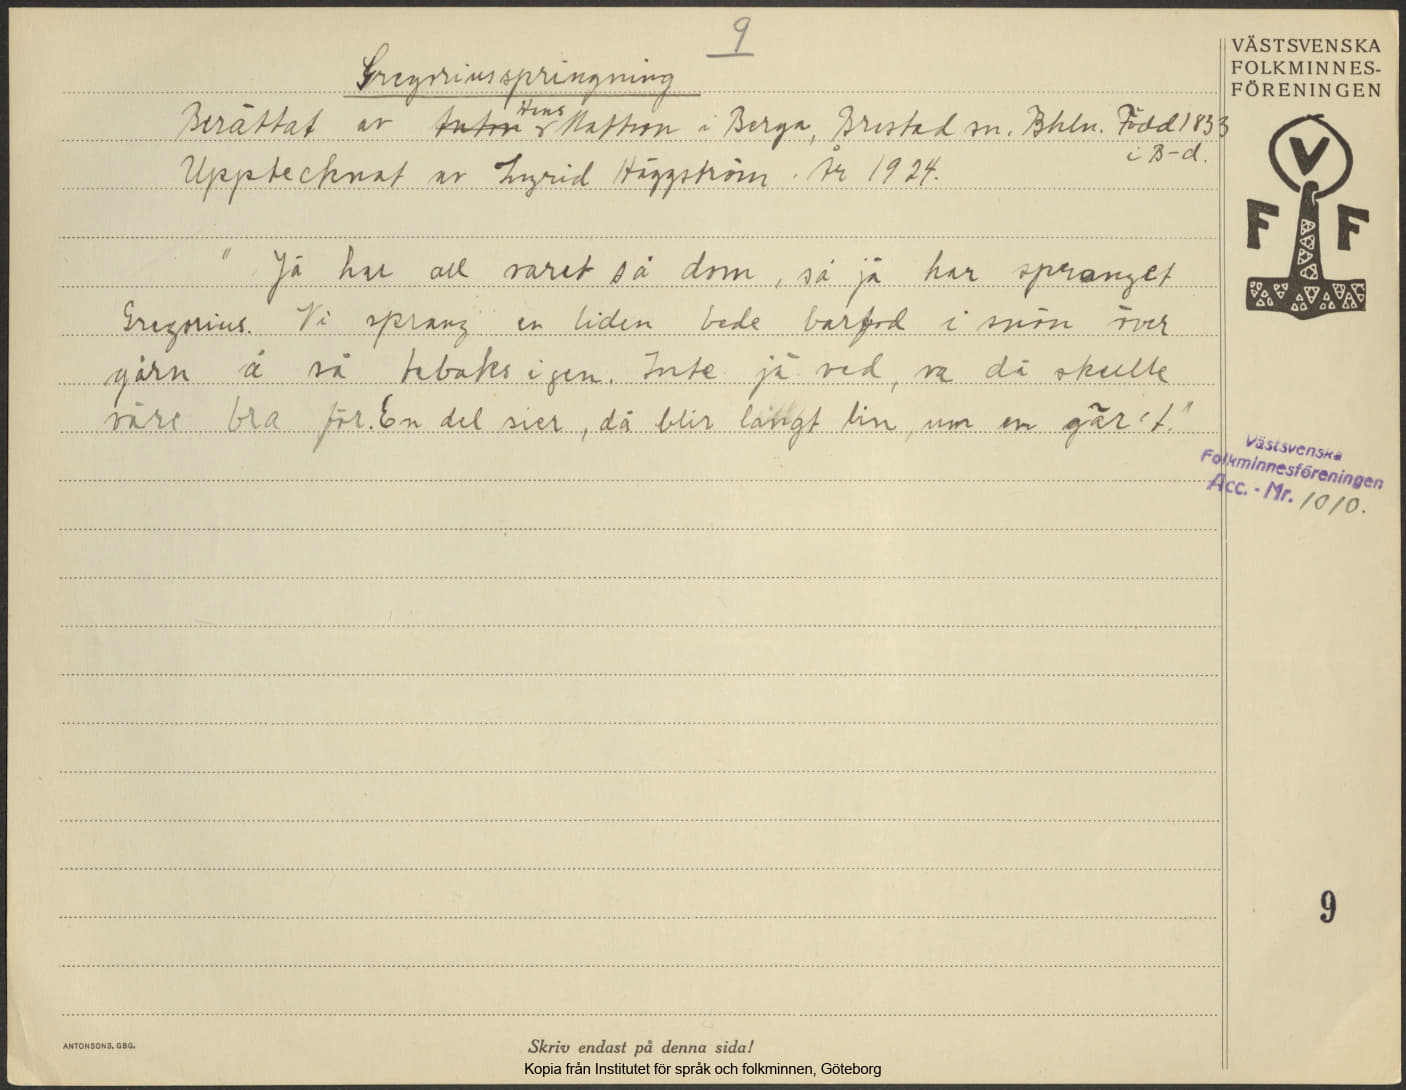 9
Gregoriusspringning
Berättat av Anton Hans Mattson i Berga, Brastad sn. Bhln. Född 1833
i B-d.
Upptecknat av Ingrid Häggström. År 1924.
" Jä har all varet så dom, så jä har spranget
Gregorius. Vi sprang en liden bede barfod i snön över
gårn å så tebaks igen. Inte jä ved, va dä skulle
våre bra för. En del sier, dä blir långt lin, um en gär 't."
VÄSTSVENSKA
FOLKMINNES-
FÖRENINGEN
V
F F
Västsvenska
Folkminnesföreningen
Acc. - Nr. 1010.
9
ANTONSONS, GBG.
Skriv endast på denna sida!
Kopia från Institutet för språk och folkminnen, Göteborg